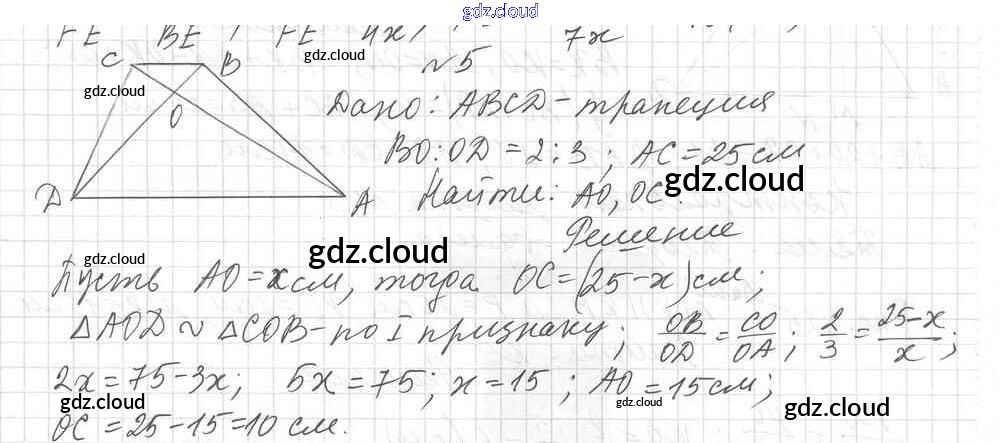 gdz.cloud
FE BE ; FE 4x 7x
gdz.cloud
C B
№5
gdz.cloud
O
Дано: ABCD - трапеция
BO:OD = 2:3; AC = 25 см
gdz.cloud
gdz.cloud
D A
Найти: AO, OC.
Решение
gdz.cloud
gdz.cloud
Пусть AO = x см, тогда OC = (25-x) см;
gdz.cloud
△AOD ~ △COB - по I признаку; OB/OD = CO/OA; 2/3 = 25-x/x;
2x = 75-3x; 5x = 75; x = 15; AO = 15 см;
gdz.cloud
gdz.cloud
gdz.cloud
gdz.cloud
OC = 25-15=10 см.